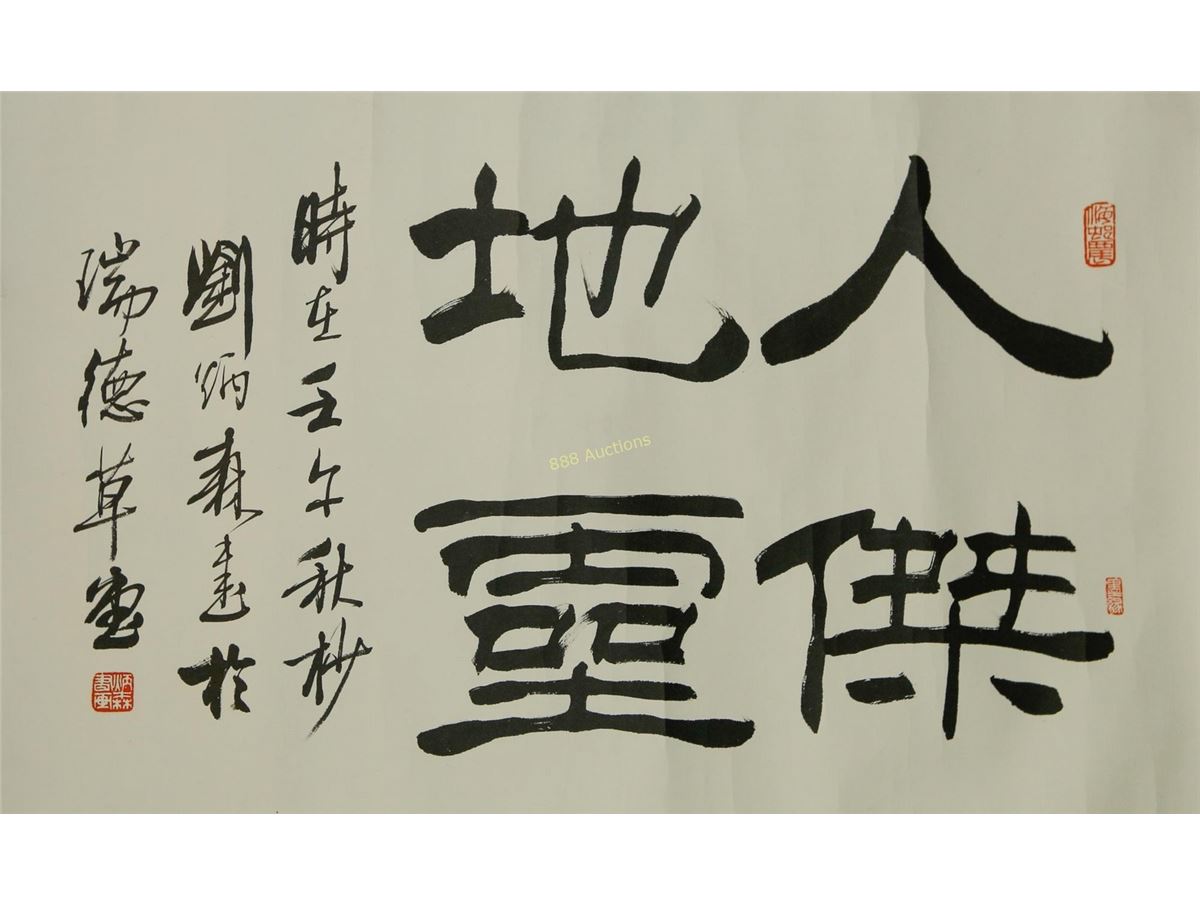 人傑
地靈
時在壬午秋杪
劉炳森書於
瑞德草堂
炳森書画
888 Auctions